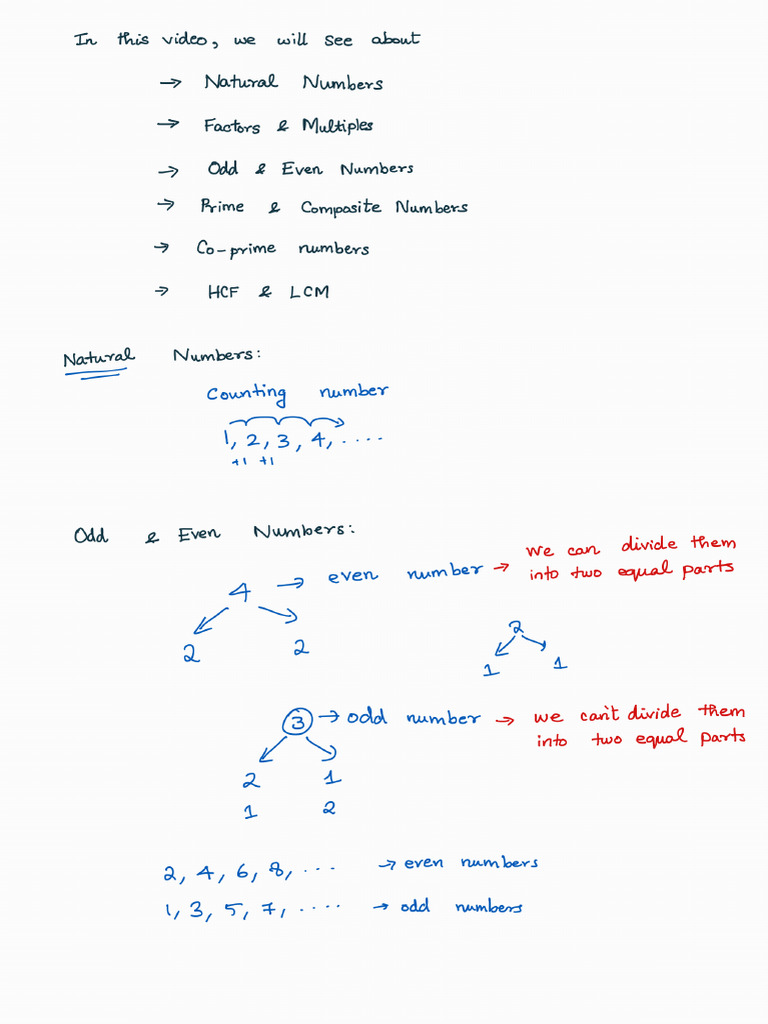 In this video, we will see about
→ Natural Numbers
→ Factors & Multiples
→ Odd & Even Numbers
→ Prime & Composite Numbers
→ Co-prime numbers
→ HCF & LCM
Natural Numbers:
Counting number
1, 2, 3, 4, ....
+1 +1
Odd & Even Numbers:
4 → even number → we can divide them
into two equal parts
2 2
2
1 1
3 → odd number → we can't divide them
into two equal parts
2 1
1 2
2, 4, 6, 8, ... → even numbers
1, 3, 5, 7, .... → odd numbers